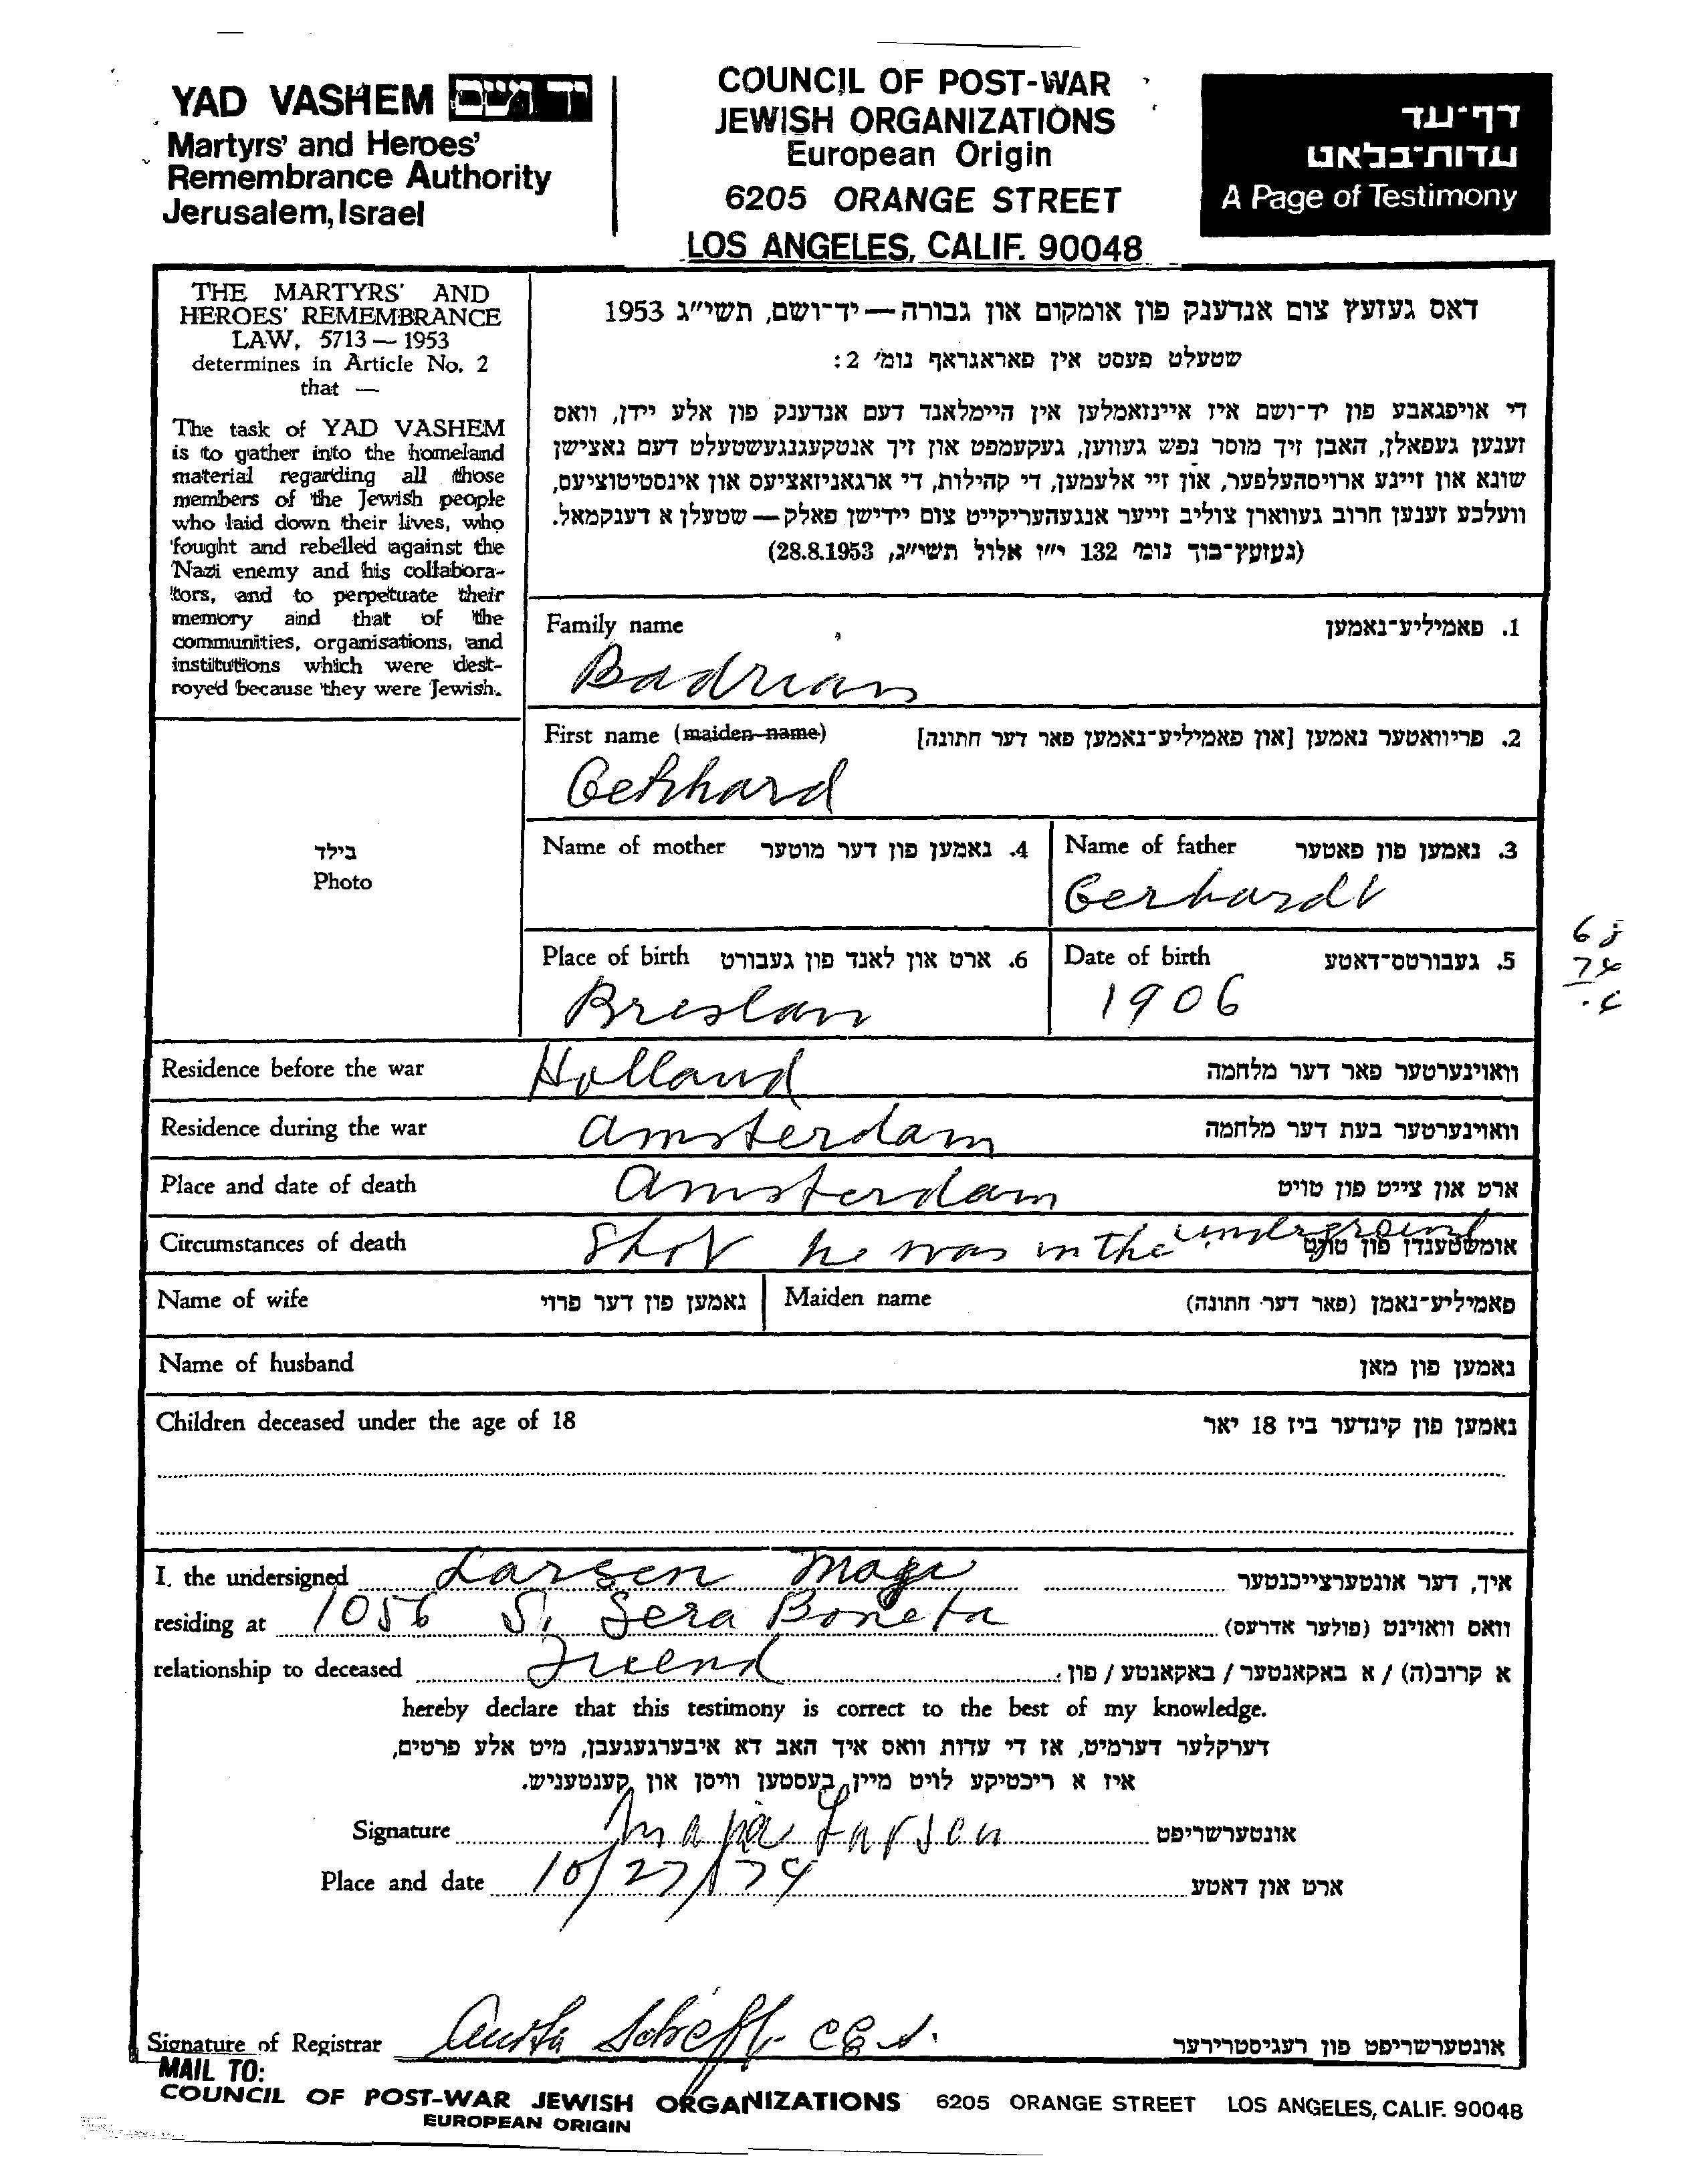 YAD VASHEM יד ושם
Martyrs' and Heroes'
Remembrance Authority
Jerusalem, Israel
COUNCIL OF POST-WAR
JEWISH ORGANIZATIONS
European Origin
6205 ORANGE STREET
LOS ANGELES, CALIF. 90048
דף-עד
עדות-בלאט
A Page of Testimony
THE MARTYRS' AND
HEROES' REMEMBRANCE
LAW, 5713 — 1953
determines in Article No. 2
that —
The task of YAD VASHEM
is to gather into the homeland
material regarding all those
members of the Jewish people
who laid down their lives, who
fought and rebelled against the
Nazi enemy and his collabora-
tors, and to perpetuate their
memory and that of the
communities, organisations, and
institutions which were dest-
royed because they were Jewish.
דאס געזעץ צום אנדענק פון אומקום און גבורה — יד-ושם, תשי"ג 1953
שטעלט פעסט אין פאראגראף נומ' 2:
די אויפגאבע פון יד-ושם איז איינזאמלען אין היימלאנד דעם אנדענק פון אלע יידן, וואס
זענען געפאלן, האבן זיך מוסר נפש געווען, געקעמפט און זיך אנטקעגנגעשטעלט דעם נאצישן
שונא און זיינע ארויסהעלפער, און זיי אלעמען, די קהילות, די ארגאניזאציעס און אינסטיטוציעס,
וועלכע זענען חרוב געווארן צוליב זייער אנגעהעריקייט צום יידישן פאלק — שטעלן א דענקמאל.
(געזעץ-בוך נומ' 132 י"ז אלול תשי"ג, 28.8.1953)
Family name 1. פאמיליע-נאמען
Badrian
First name (maiden name) 2. פריוואטער נאמען [און פאמיליע-נאמען פאר דער חתונה]
Gerhard
בילד
Photo
Name of mother 4. נאמען פון דער מוטער
Name of father 3. נאמען פון פאטער
Gerhardt
Place of birth 6. ארט און לאנד פון געבורט
Breslau
Date of birth 5. געבורטס-דאטע
1906
Residence before the war Holland וואוינערטער פאר דער מלחמה
Residence during the war Amsterdam וואוינערטער בעת דער מלחמה
Place and date of death Amsterdam ארט און צייט פון טויט
Circumstances of death Shot he was in the underground אומשטענדן פון טויט
Name of wife נאמען פון דער פרוי Maiden name פאמיליע-נאמן (פאר דער חתונה)
Name of husband נאמען פון מאן
Children deceased under the age of 18 נאמען פון קינדער ביז 18 יאר
I, the undersigned Larsen Maga איך, דער אונטערצייכנטער
residing at 1056 S. Sera Boneta וואס וואוינט (פולער אדרעס)
relationship to deceased Friend א קרוב(ה) / א באקאנטער / באקאנטע / פון
hereby declare that this testimony is correct to the best of my knowledge.
דערקלער דערמיט, אז די עדות וואס איך האב דא איבערגעגעבן, מיט אלע פרטים,
איז א ריכטיקע לויט מיין בעסטען וויסן און קענטעניש.
Signature Maga Larsen אונטערשריפט
Place and date 10/27/74 ארט און דאטע
Signature of Registrar אונטערשריפט פון רעגיסטרירער
MAIL TO:
COUNCIL OF POST-WAR JEWISH ORGANIZATIONS 6205 ORANGE STREET LOS ANGELES, CALIF. 90048
EUROPEAN ORIGIN